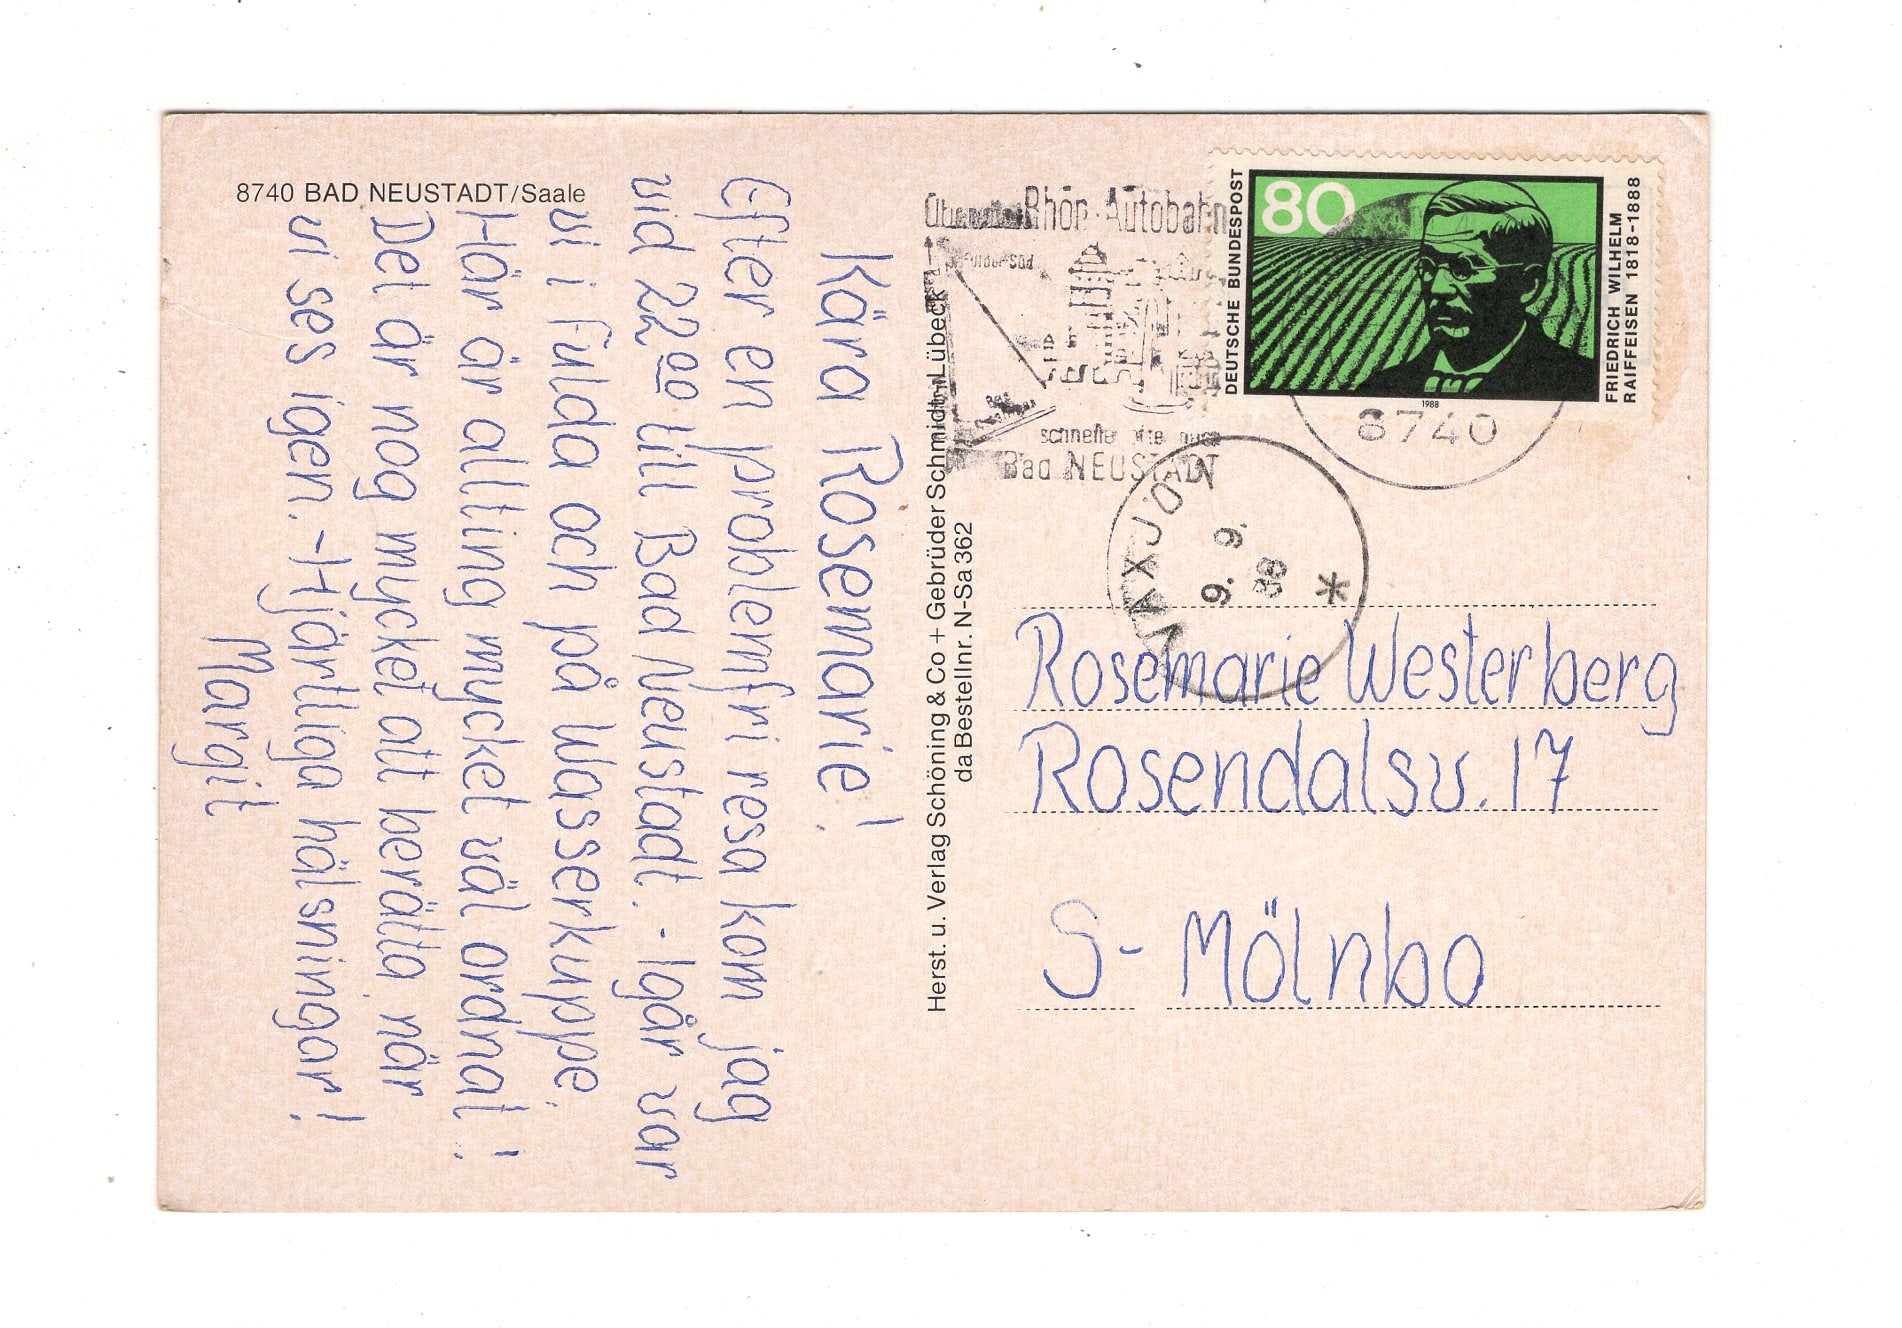 8740 BAD NEUSTADT/Saale
Kära Rosemarie!
Efter en problemfri resa kom jag
vid 22⁰⁰ till Bad Neustadt. - Igår var
vi i Fulda och på Wasserkuppe.
Här är allting mycket väl ordnat!
Det är nog mycket att berätta, när
vi ses igen. - Hjärtliga hälsningar!
Margit
Herst. u. Verlag Schöning & Co + Gebrüder Schmidt, Lübeck
da Bestellnr. N-Sa 362
Rhön-Autobahn
schneller
Bad NEUSTADT
DEUTSCHE BUNDESPOST
80
FRIEDRICH WILHELM
RAIFFEISEN 1818-1888
1988
8740
VÄXJÖ
9. 9.
88
*
Rosemarie Westerberg
Rosendalsv. 17
S- Mölnbo